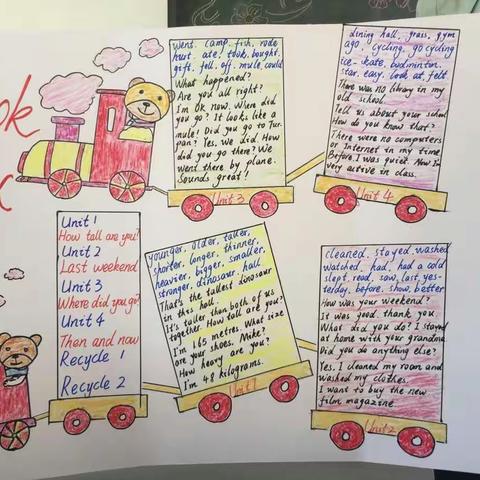 ok
went. camp. fish. rode
hurt. ate. took. bought.
gift. fell. off. mule. could
What happened?
Are you all right?
I'm OK now. When did
you go? It looks like a
mule! Did you go to Tur-
pan? Yes, we did. How
did you go there? We
went there by plane.
Sounds great!
Unit 3
dining hall. grass. gym
ago. cycling. go cycling
ice-skate. badminton.
star. easy. look at. felt
There was no library in my
old school.
Tell us about your school
How do you know that?
There were no computers
or Internet in my time
Before, I was quiet. Now I'm
very active in class.
Unit 4
Unit 1
How tall are you?
Unit 2
Last weekend
Unit 3
Where did you go?
Unit 4
Then and now
Recycle 1
Recycle 2
younger, older, taller,
shorter, longer, thinner,
heavier, bigger, smaller,
stronger, dinosaur, hall.
That's the tallest dinosaur
in this hall.
It's taller than both of us
together. How tall are you?
I'm 1.65 metres. What size
are your shoes, Mike?
How heavy are you?
I'm 48 kilograms.
Unit 1
cleaned, stayed, washed
watched, had, had a cold
slept, read, saw, last, yes-
terday, before, show, better
How was your weekend?
It was good, thank you
What did you do? I stayed
at home with your grandma
Did you do anything else?
Yes, I cleaned my room and
washed my clothes.
I want to buy the new
film magazine
Unit 2